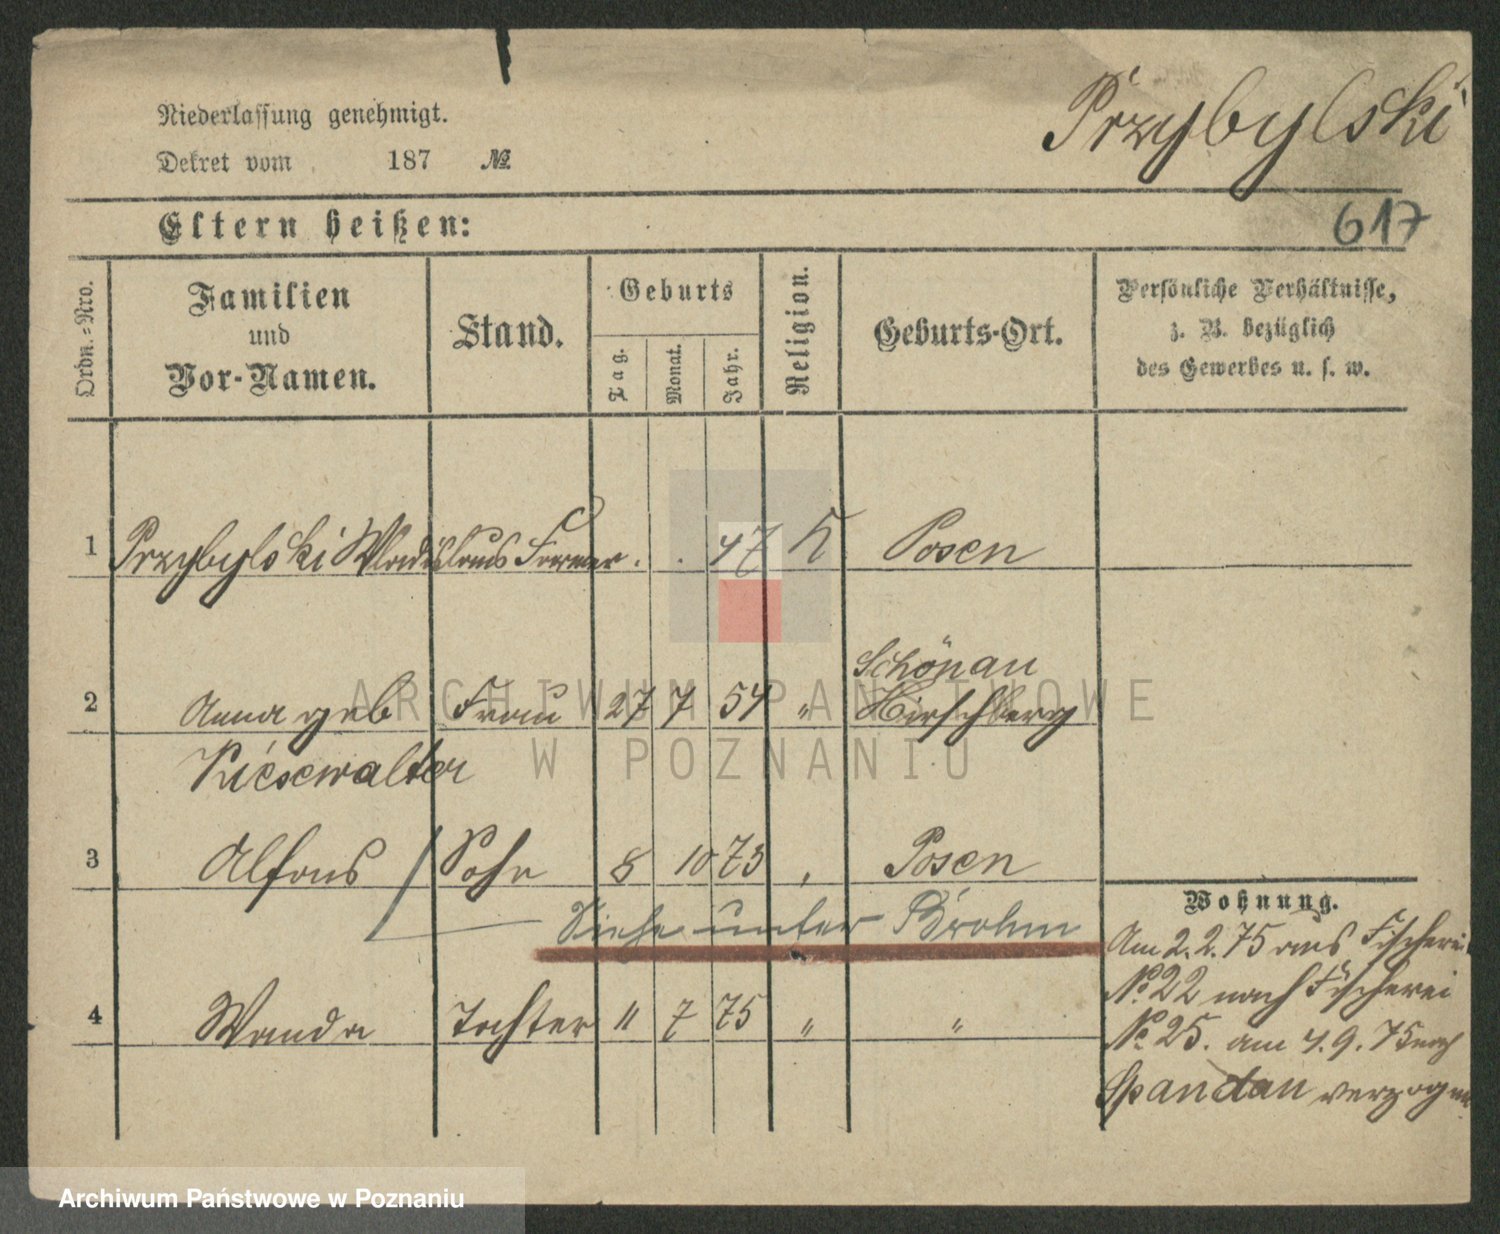 Niederlassung genehmigt.
Dekret vom 187 №
Przybylski
617
Eltern heißen:
Ordn.=Nro.
Familien
und
Vor-Namen.
Stand.
Geburts
Tag.
Monat.
Jahr.
Religion.
Geburts-Ort.
Persönliche Verhältnisse,
z. B. bezüglich
des Gewerbes u. s. w.
1 Przybylski Wladislaus Former . . 47 K Posen
Schönau
2 Anna geb Frau 27 7 54 " Hirschberg
Kiesewalter
3 Alfons Sohn 8 10 73 , Posen
Siehe unter Brohm
4 Wanda Tochter 11 7 75 " "
Wohnung.
Am 2.2.75 aus Fischerei
No 22 nach Fischerei
No 25. am 4.9.75 nach
Spandau verzogen
ARCHIWUM PAŃSTWOWE
W POZNANIU
Archiwum Państwowe w Poznaniu